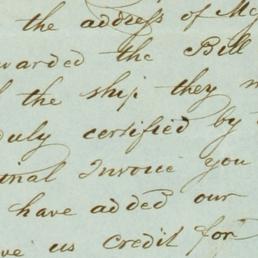 the address of
warded the Bill
the ship they
duly certified by
Invoice you
have added our
us credit for